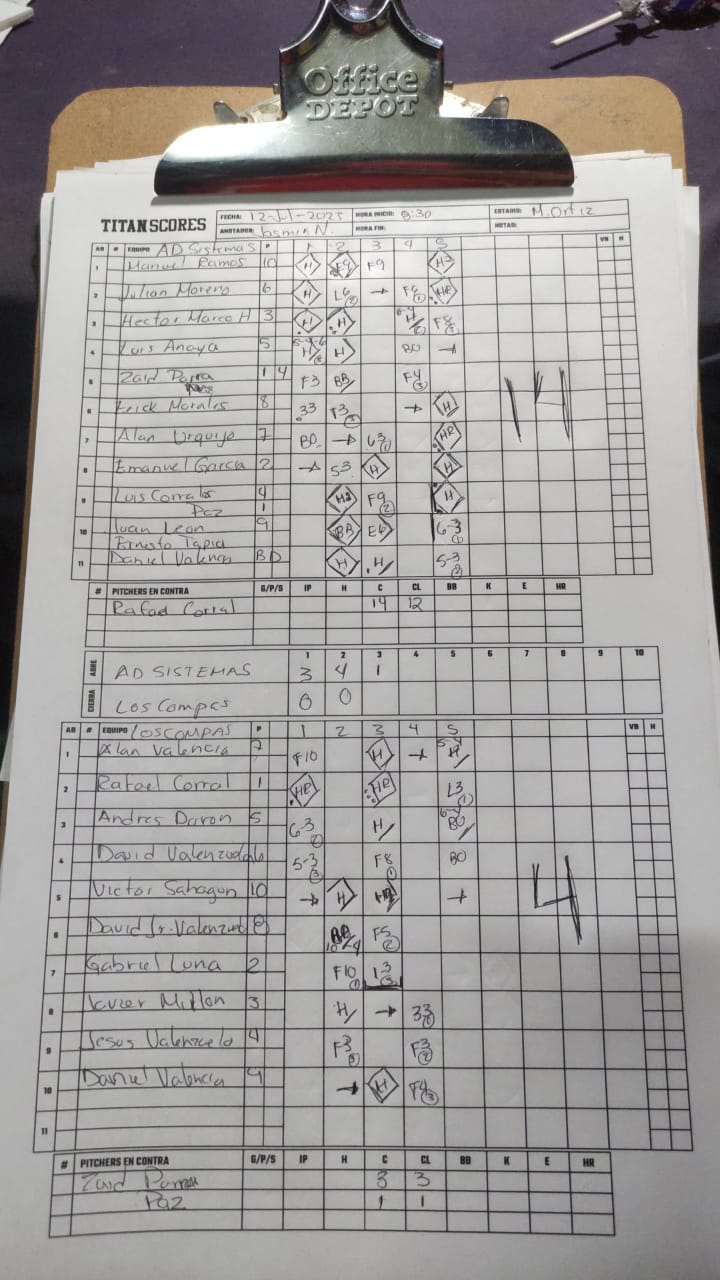 Office
DEPOT
TITANSCORES
FECHA: 12-Jul-2025 HORA INICIO: 8:30 ESTADIO: M. Ortiz
ANOTADOR: HORA FIN: NOTAS:
AB # EQUIPO AD Sistemas P 1 2 3 4 5 VB H
1 Manuel Ramos 10 H F9 F9 H3
2 Julian Moreno 6 H L6 2 → F6 1 HR
3 Hector Marco H 3 H H 6-4 H 2 F8 3
4 Luis Anaya 5 5-4-6 H 2 H BO →
5 Zaid Parra 1 4 F3 BB F4 3
6 Erick Morales 8 33 F3 3 → H
7 Alan Urquijo 7 BO → 63 1 HR
8 Emanuel Garcia 2 → 53 H H
9 Luis Corrales 4 H2 F9 2 H
Paz 1
10 Juan Leon 9 BB E6 6-3 1
Ernesto Tapia
11 Daniel Valencia BD H H 5-3 2
14
# PITCHERS EN CONTRA G/P/S IP H C CL BB K E HR
Rafael Corral 14 12
1 2 3 4 5 6 7 8 9 10
ABRE AD SISTEMAS 3 4 1
CIERRA Los Compas 0 0
AB # EQUIPO LOS COMPAS P 1 2 3 4 5 VB H
1 Alan Valencia 7 F10 H → 5-4 H
2 Rafael Corral 1 HR HR L3 1
3 Andres Duron 5 6-3 2 H 6-4 BO
4 David Valenzuela 6 5-3 3 F8 1 BO
5 Victor Sahagun 10 → H →
6 David Jr. Valenzuela 8 BB 10-4 F5 2
7 Gabriel Luna 2 F10 1 1-3 3
8 Millon 3 H → 33 1
9 Jesus Valenzuela 4 F3 3 F3 2
10 Daniel Valencia 9 → H F4 3
11
4
# PITCHERS EN CONTRA G/P/S IP H C CL BB K E HR
Zaid Parra 3 3
Paz 1 1